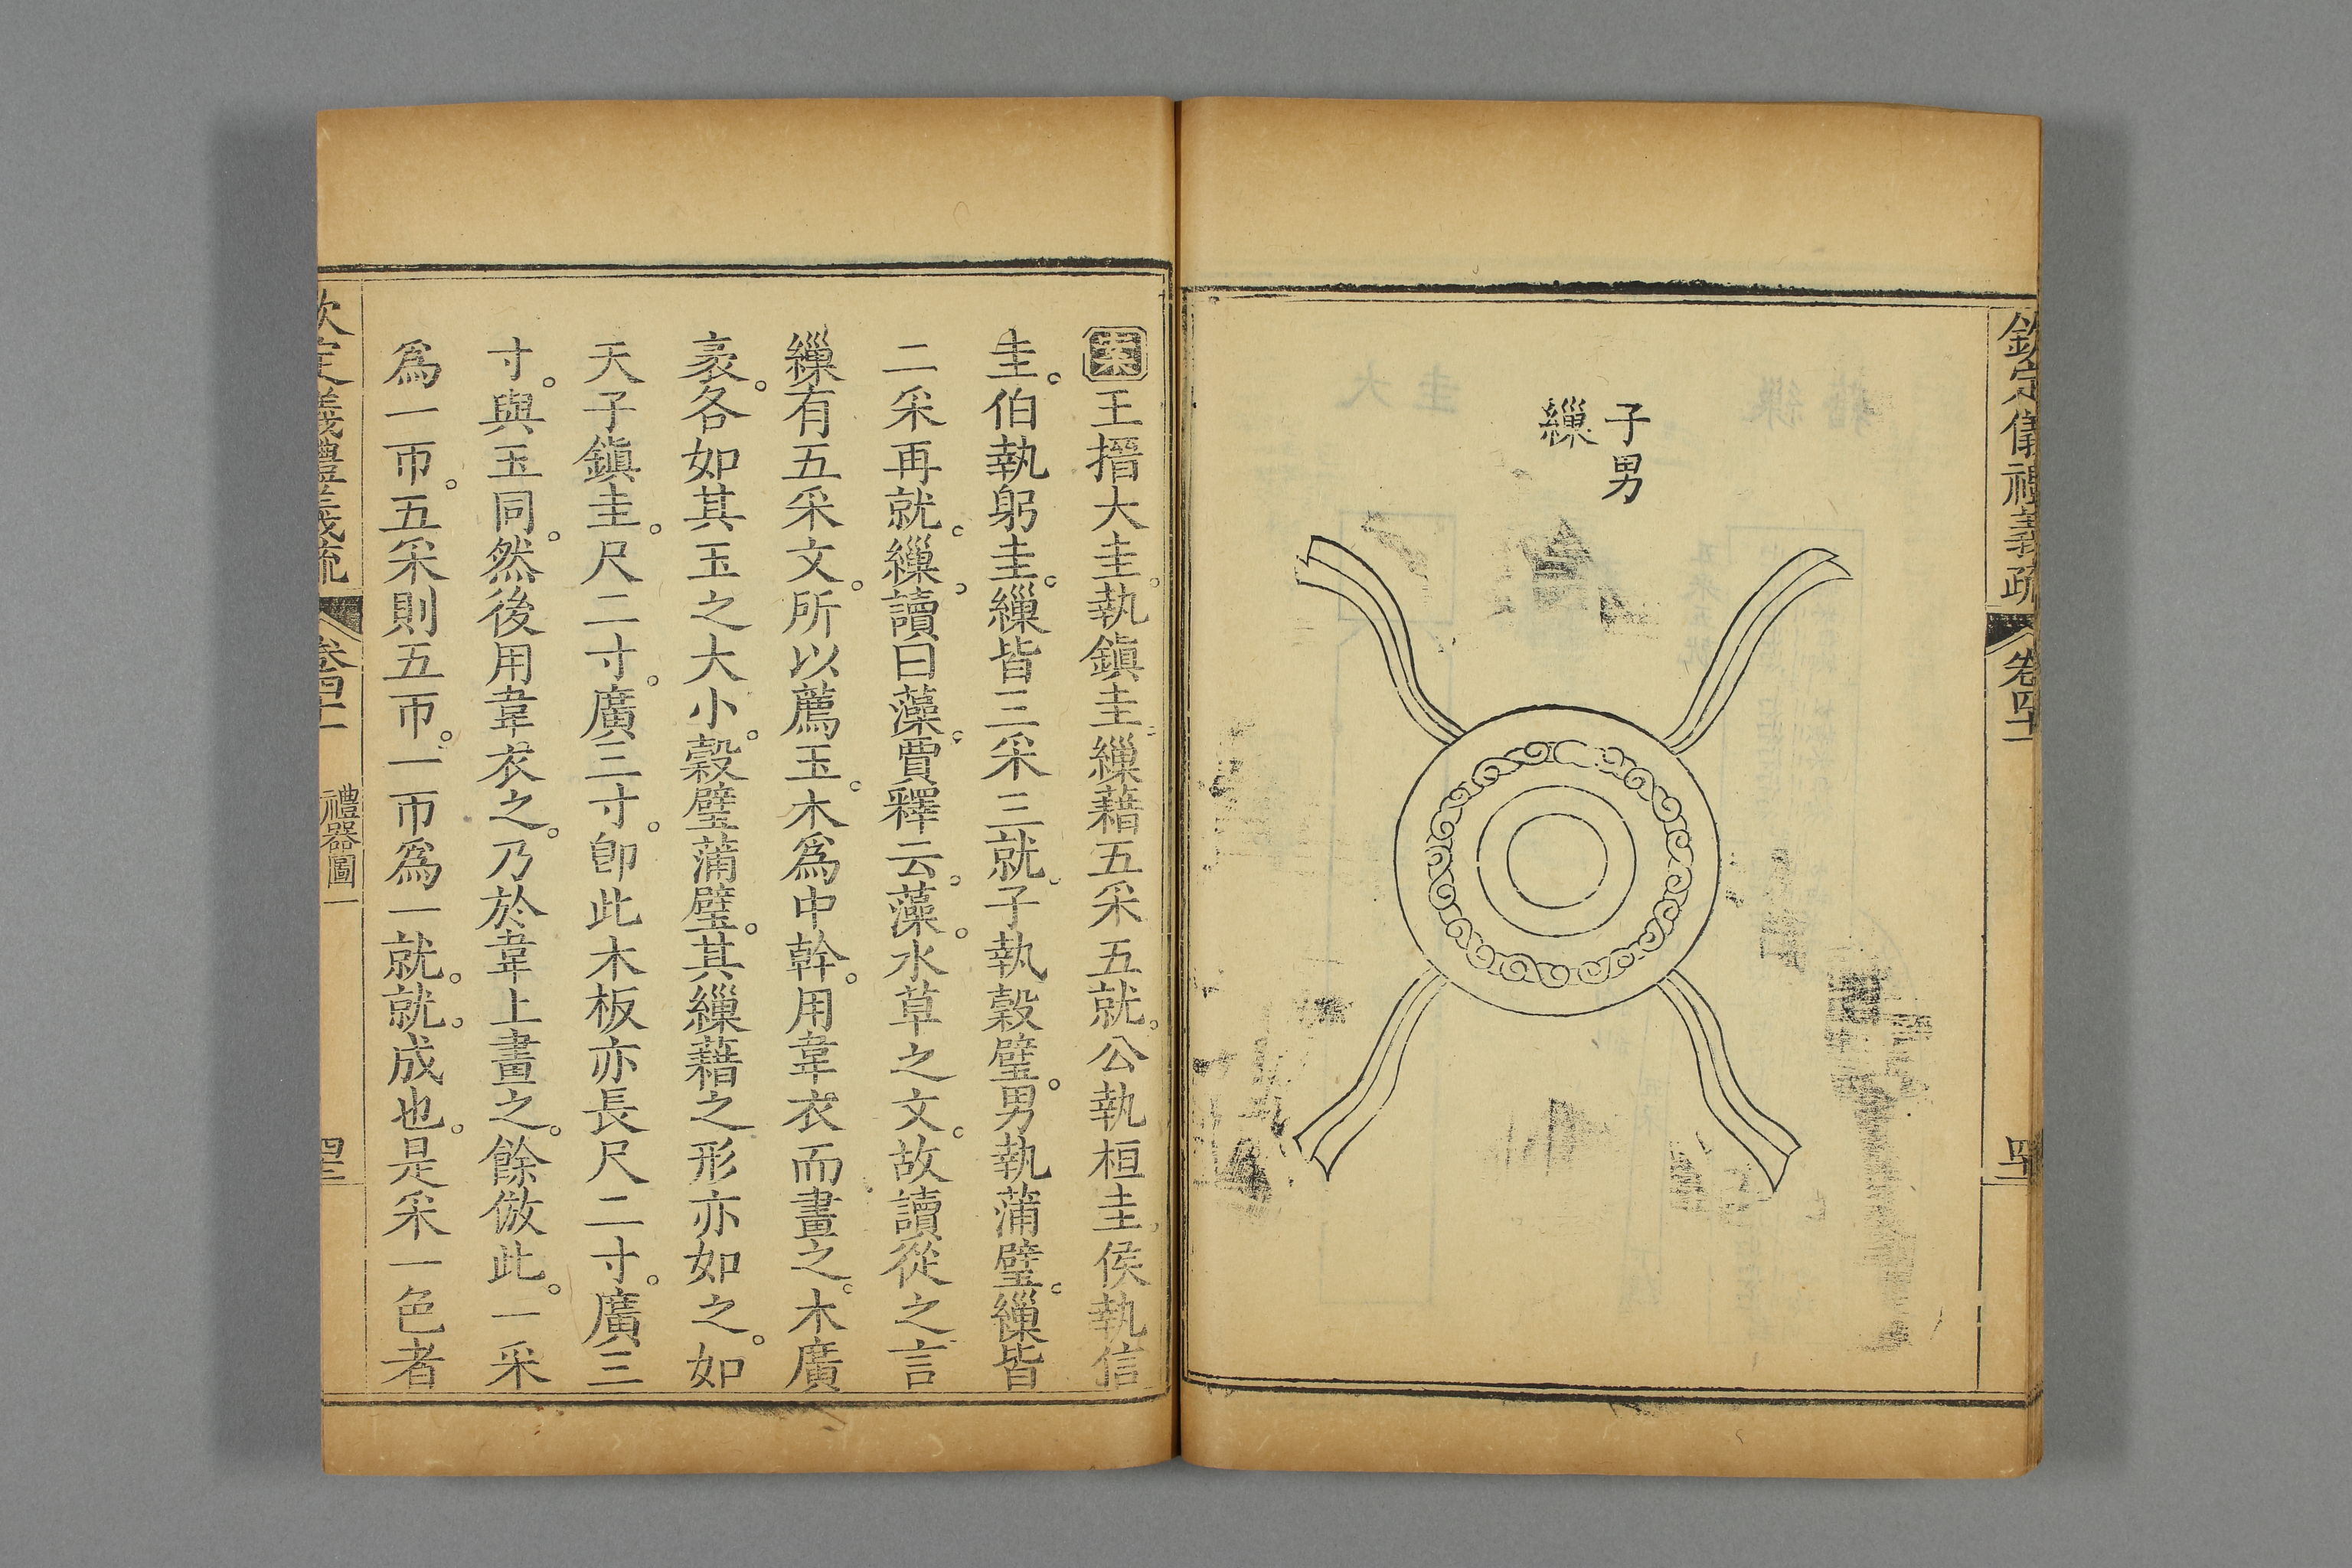 欽定儀禮義疏 卷四十一
子男
繅
王搢大圭。執鎮圭。繅藉五采五就。公執桓圭。侯執信
圭。伯執躬圭。繅皆三采三就。子執穀璧。男執蒲璧。繅皆
二采再就。繅。讀曰藻。賈釋云。藻。水草之文。故讀從之言
繅有五采文。所以薦玉。木為中幹。用韋衣而畫之。木廣
袤。各如其玉之大小。穀璧蒲璧。其繅藉之形亦如之。如
天子鎮圭。尺二寸。廣三寸。卽此木板亦長尺二寸。廣三
寸。與玉同。然後用韋衣之。乃於韋上畫之。餘倣此。一采
為一帀。五采則五帀。一帀為一就。就。成也。是采一色者
欽定儀禮義疏 卷四十一 禮器圖一